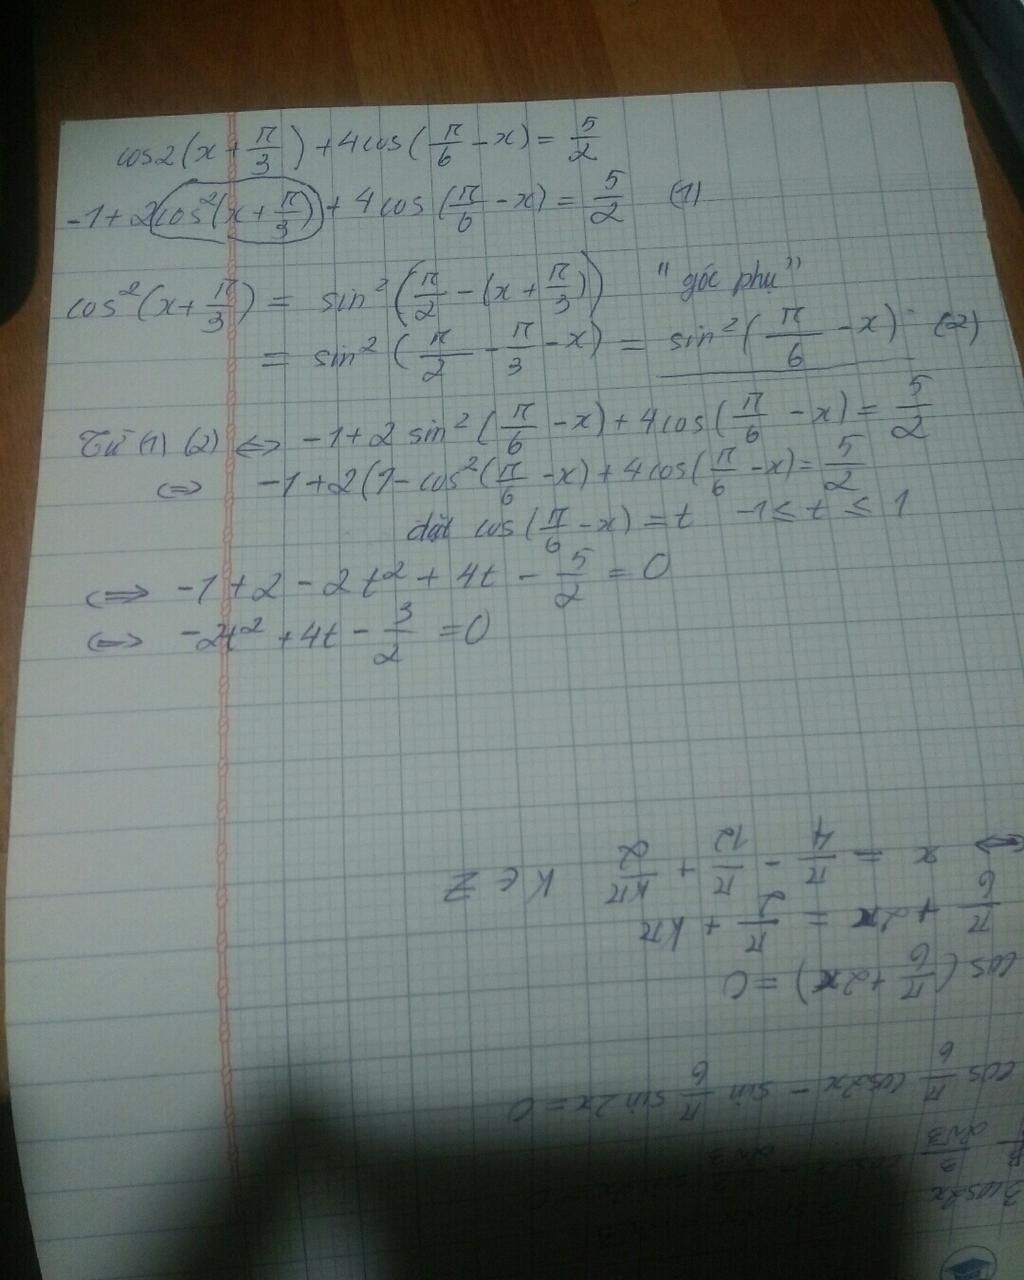 cos2(x+π/3)+4cos(π/6-x)=5/2
-1+2cos²(x+π/3)+4cos(π/6-x)=5/2 (1)
cos²(x+π/3) = sin²(π/2-(x+π/3)) "góc phụ"
= sin²(π/2-π/3-x) = sin²(π/6-x) (2)
Từ (1) (2) <=> -1+2 sin²(π/6-x)+4cos(π/6-x)=5/2
<=> -1+2(1-cos²(π/6-x)+4cos(π/6-x)=5/2
đặt cos(π/6-x)=t -1≤t≤1
<=> -1+2-2t²+4t-5/2=0
<=> -2t²+4t-3/2=0
cos π/6 cos2x - sin π/6 sin2x=0
cos(π/6+2x)=0
π/6+2x=π/2+kπ
<=> x=π/4-π/12+kπ/2 K∈Z